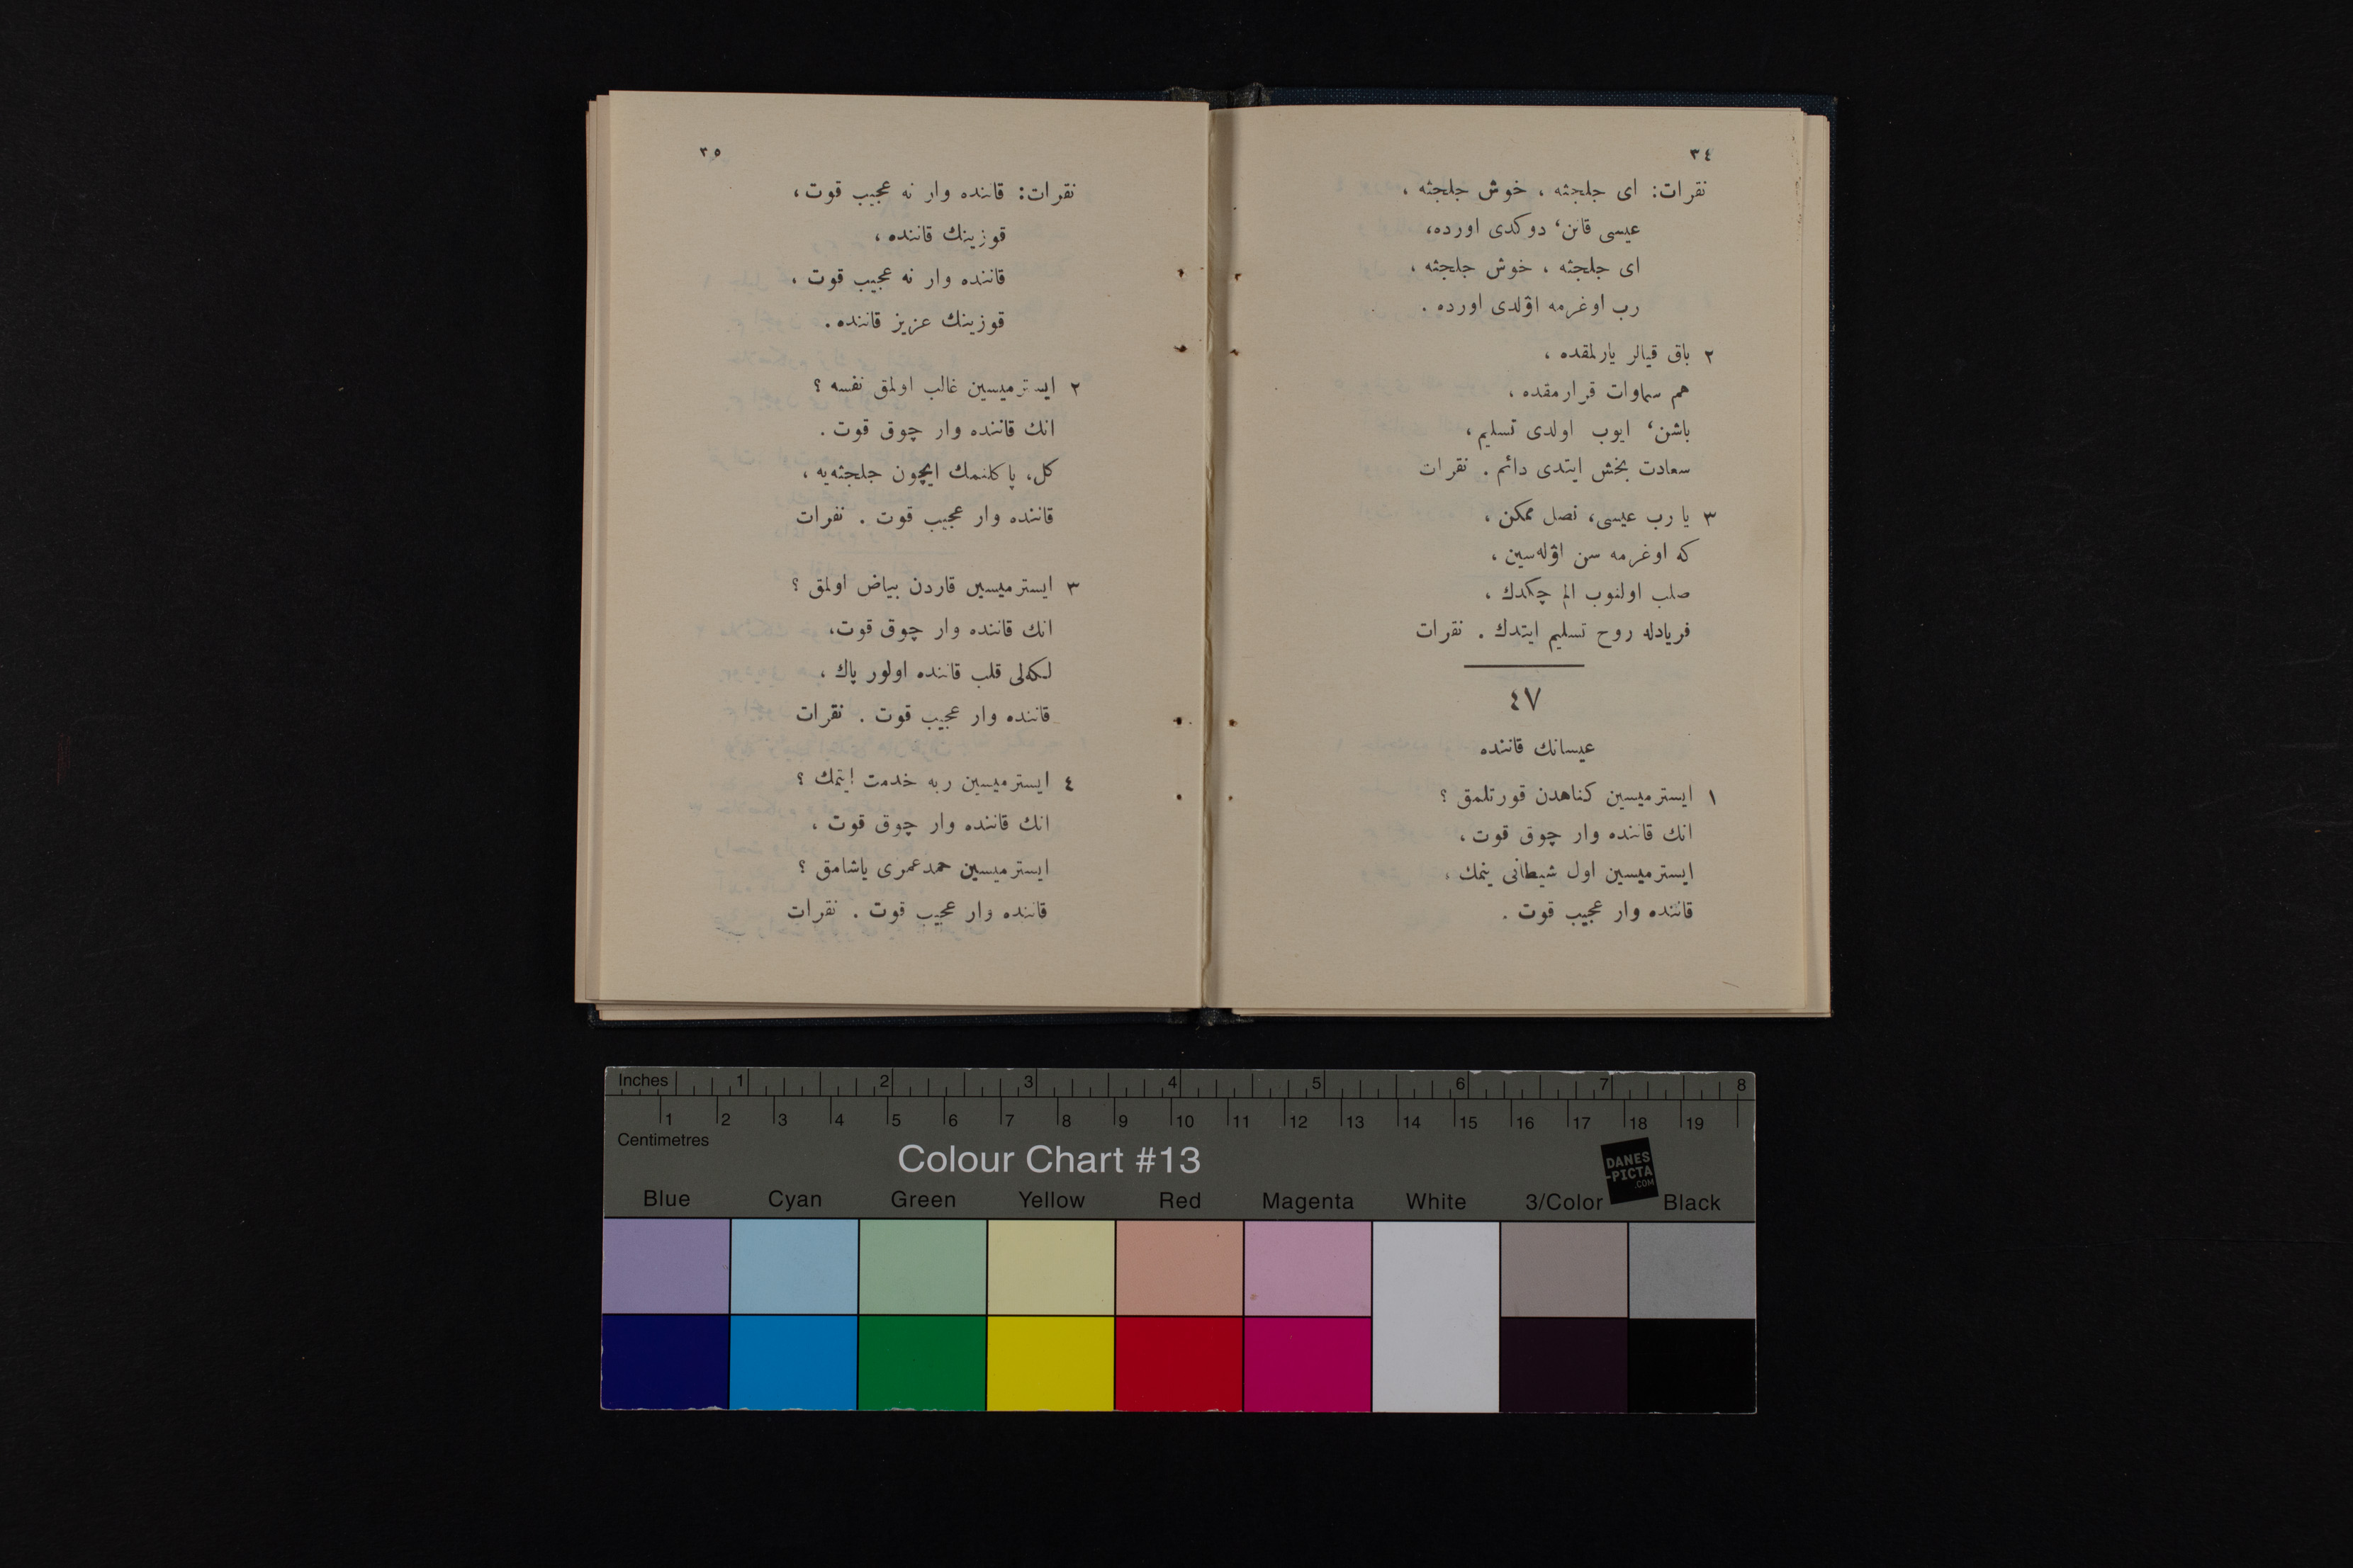 ٣٤
نقرات: ای جلجثه ، خوش جلجثه ،
عیسی قانن‘ دوکدی اورده،
ای جلجثه ، خوش جلجثه ،
رب اوغرمه اۆلدی اورده .
٢ باق قیالر یارلمقده ،
هم سماوات قرارمقده ،
باشن‘ ایوب اولدی تسلیم،
سعادت بخش ایتدی دائم . نقرات
٣ یا رب عیسی، نصل ممکن ،
که اوغرمه سن اۆله‌سین ،
صلب اولنوب الم چکدك ،
فریادله روح تسلیم ایتدك . نقرات
٤٧
عیسانك قاننده
١ ایسترمیسین کناهدن قورتلمق ؟
انك قاننده وار چوق قوت،
ایسترمیسین اول شیطانی ینمك ،
قاننده وار عجیب قوت .
٣٥
نقرات: قاننده وار نه عجیب قوت،
قوزینك قاننده ،
قاننده وار نه عجیب قوت ،
قوزینك عزیز قاننده .
٢ ایسترمیسین غالب اولمق نفسه ؟
انك قاننده وار چوق قوت .
کل، پاکلنمك ایچون جلجثه‌یه ،
قاننده وار عجیب قوت . نقرات
٣ ایسترمیسین قاردن بیاض اولمق ؟
انك قاننده وار چوق قوت،
لکه‌لی قلب قاننده اولور پاك ،
قاننده وار عجیب قوت . نقرات
٤ ایسترمیسین ربه خدمت ایتمك ؟
انك قاننده وار چوق قوت ،
ایسترمیسین حمدعمری یاشامق ؟
قاننده وار عجیب قوت . نقرات
Inches 1 2 3 4 5 6 7 8
1 2 3 4 5 6 7 8 9 10 11 12 13 14 15 16 17 18 19
Centimetres
Colour Chart #13
DANES
-PICTA
.COM
Blue Cyan Green Yellow Red Magenta White 3/Color Black